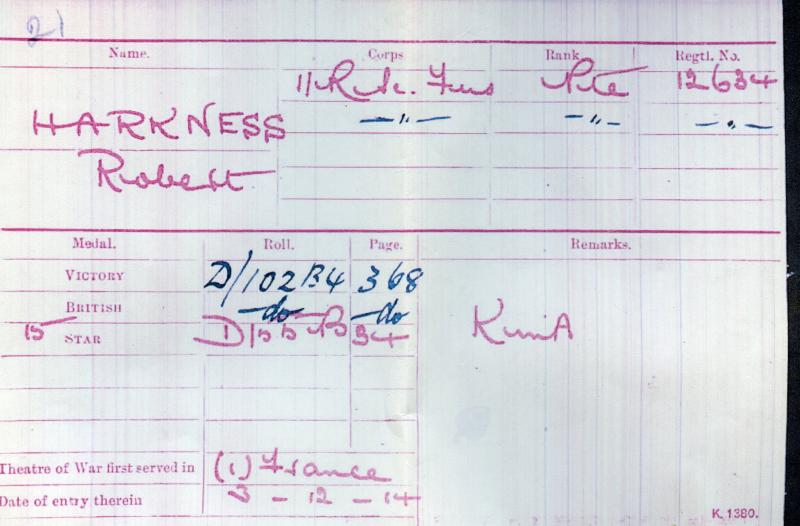 21
Name. Corps Rank Regtl. No.
11/R. Sc. Fus Pte 12634
HARKNESS —„— —„— —„—
Robert
Medal. Roll. Page. Remarks.
VICTORY D/102 B4 368
BRITISH —do— —do
15 STAR D/ B 34 K in A
Theatre of War first served in (1) France
Date of entry therein 3 - 12 - 14
K. 1380.